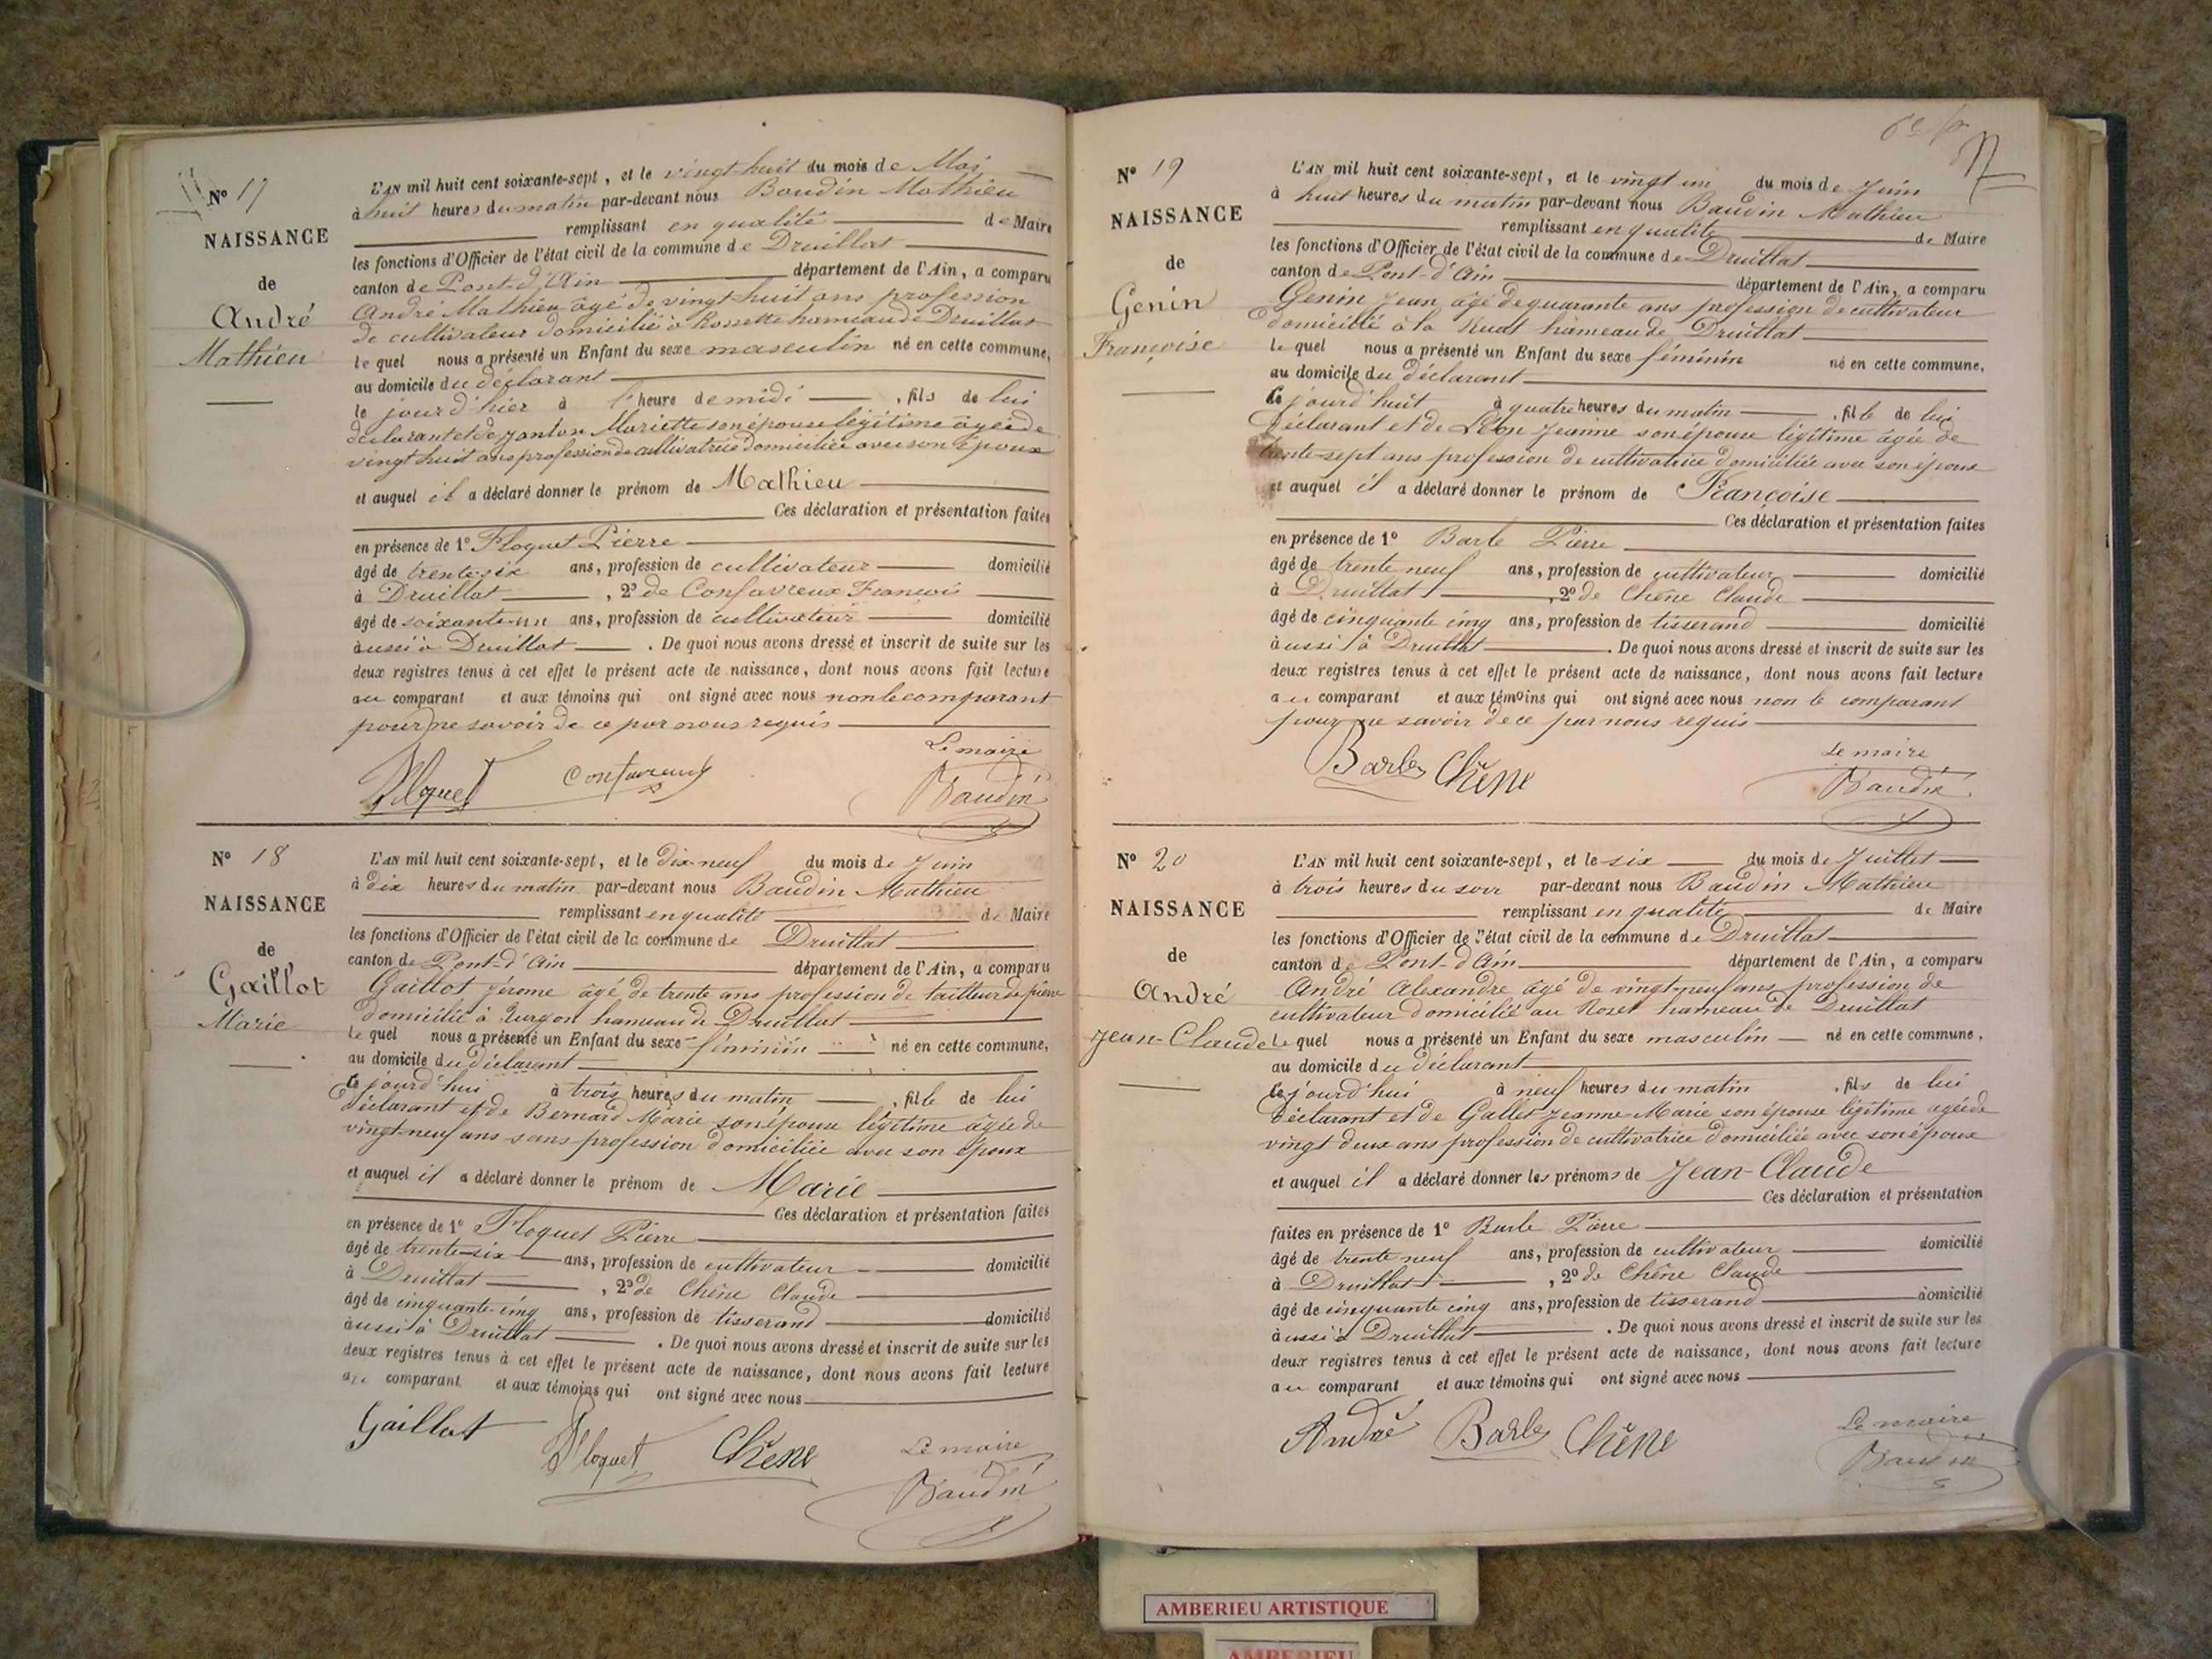 N° 17
NAISSANCE
de
André
Mathieu
L'AN mil huit cent soixante-sept, et le vingt-huit du mois de Mai
à huit heures du matin par-devant nous Baudin Mathieu
remplissant en qualité de Maire
les fonctions d'Officier de l'état civil de la commune de Druillat
canton de Pont-d'Ain département de l'Ain, a comparu
André Mathieu âgé de vingt-huit ans profession
de cultivateur domicilié à hameau de Druillat
le quel nous a présenté un Enfant du sexe masculin né en cette commune,
au domicile du déclarant
le jour d'hier à l'heure de midi, fils de lui
déclarant et de Mariette son épouse légitime âgée de
vingt huit ans profession de cultivatrice domiciliée avec son époux
et auquel il a déclaré donner le prénom de Mathieu
Ces déclaration et présentation faites
en présence de 1° Floquet Pierre
âgé de trente-six ans, profession de cultivateur domicilié
à Druillat, 2° de Confavreux François
âgé de soixante-un ans, profession de cultivateur domicilié
aussi à Druillat. De quoi nous avons dressé et inscrit de suite sur les
deux registres tenus à cet effet le présent acte de naissance, dont nous avons fait lecture
au comparant et aux témoins qui ont signé avec nous non le comparant
pour ne savoir de ce par nous requis
Le maire
Floquet Confavreux Baudin
N° 18
NAISSANCE
de
Gaillot
Marie
L'AN mil huit cent soixante-sept, et le dix-neuf du mois de Juin
à dix heures du matin par-devant nous Baudin Mathieu
remplissant en qualité de Maire
les fonctions d'Officier de l'état civil de la commune de Druillat
canton de Pont-d'Ain département de l'Ain, a comparu
Gaillot Jérome âgé de trente ans profession de tailleur de pierre
domicilié à Turgon hameau de Druillat
le quel nous a présenté un Enfant du sexe féminin né en cette commune,
au domicile du déclarant
Ce jourd'hui à trois heures du matin, fille de lui
déclarant et de Bernard Marie son épouse légitime âgée de
vingt-neuf ans sans profession domiciliée avec son époux
et auquel il a déclaré donner le prénom de Marie
Ces déclaration et présentation faites
en présence de 1° Floquet Pierre
âgé de trente-six ans, profession de cultivateur domicilié
à Druillat, 2° de Chêne Claude
âgé de cinquante-cinq ans, profession de tisserand domicilié
aussi à Druillat. De quoi nous avons dressé et inscrit de suite sur les
deux registres tenus à cet effet le présent acte de naissance, dont nous avons fait lecture
au comparant et aux témoins qui ont signé avec nous
Gaillot Floquet Chêne Le maire
Baudin
N° 19
NAISSANCE
de
Genin
Françoise
L'AN mil huit cent soixante-sept, et le vingt un du mois de Juin
à huit heures du matin par-devant nous Baudin Mathieu
remplissant en qualité de Maire
les fonctions d'Officier de l'état civil de la commune de Druillat
canton de Pont-d'Ain département de l'Ain, a comparu
Genin Jean âgé de quarante ans profession de cultivateur
domicilié à la Ruat hameau de Druillat
le quel nous a présenté un Enfant du sexe féminin né en cette commune,
au domicile du déclarant
Ce jourd'huit à quatre heures du matin, fille de lui
déclarant et de Léon Jeanne son épouse légitime âgée de
trente-sept ans profession de cultivatrice domiciliée avec son époux
et auquel il a déclaré donner le prénom de Françoise
Ces déclaration et présentation faites
en présence de 1° Barbe Pierre
âgé de trente neuf ans, profession de cultivateur domicilié
à Druillat, 2° de Chêne Claude
âgé de cinquante cinq ans, profession de tisserand domicilié
aussi à Druillat. De quoi nous avons dressé et inscrit de suite sur les
deux registres tenus à cet effet le présent acte de naissance, dont nous avons fait lecture
au comparant et aux témoins qui ont signé avec nous non le comparant
pour ne savoir de ce par nous requis
Le maire
Barbe Chêne Baudin
N° 20
NAISSANCE
de
André
Jean-Claude
L'AN mil huit cent soixante-sept, et le six du mois de Juillet
à trois heures du soir par-devant nous Baudin Mathieu
remplissant en qualité de Maire
les fonctions d'Officier de l'état civil de la commune de Druillat
canton de Pont-d'Ain département de l'Ain, a comparu
André Alexandre âgé de vingt-neuf ans profession de
cultivateur domicilié au Roset hameau de Druillat
le quel nous a présenté un Enfant du sexe masculin né en cette commune,
au domicile du déclarant
Ce jourd'hui à neuf heures du matin, fils de lui
déclarant et de Gallet Jeanne-Marie son épouse légitime âgée de
vingt deux ans profession de cultivatrice domiciliée avec son époux
et auquel il a déclaré donner les prénoms de Jean-Claude
Ces déclaration et présentation
faites en présence de 1° Barbe Pierre
âgé de trente neuf ans, profession de cultivateur domicilié
à Druillat, 2° de Chêne Claude
âgé de cinquante cinq ans, profession de tisserand domicilié
aussi à Druillat. De quoi nous avons dressé et inscrit de suite sur les
deux registres tenus à cet effet le présent acte de naissance, dont nous avons fait lecture
au comparant et aux témoins qui ont signé avec nous
André Barbe Chêne Le maire
Baudin
AMBERIEU ARTISTIQUE
AMBERIEU